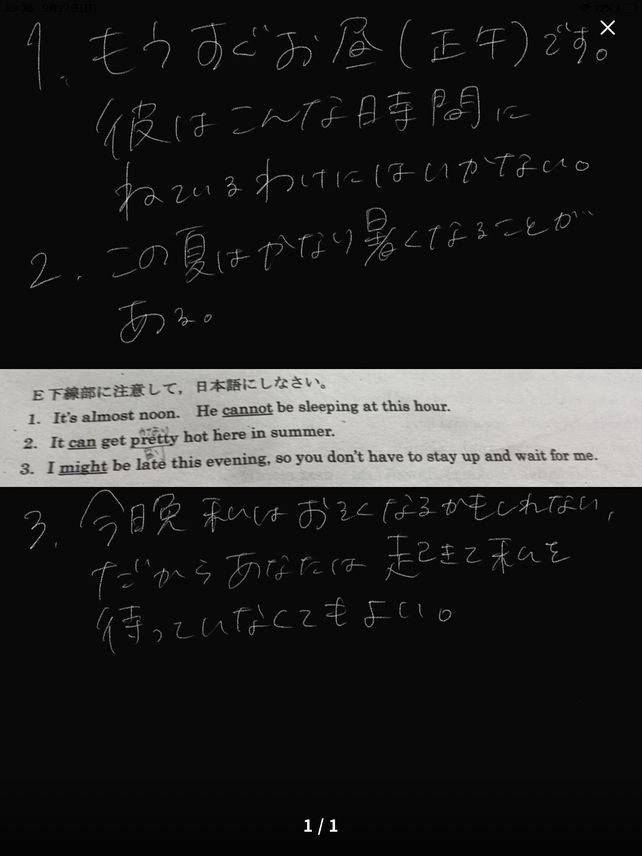 23:36 9月27日(日)
1. もうすぐお昼(正午)です。
彼はこんな日時間に
ねているわけにはいかない。
2. この夏はかなり暑くなることが
ある。
E 下線部に注意して，日本語にしなさい。
1. It's almost noon. He cannot be sleeping at this hour.
かなり
2. It can get pretty hot here in summer.
3. I might be late this evening, so you don't have to stay up and wait for me.
3. 今日晩 私はおそくなるかもしれない,
だからあなたは起きて私を
待っていなくてもよい。
1 / 1